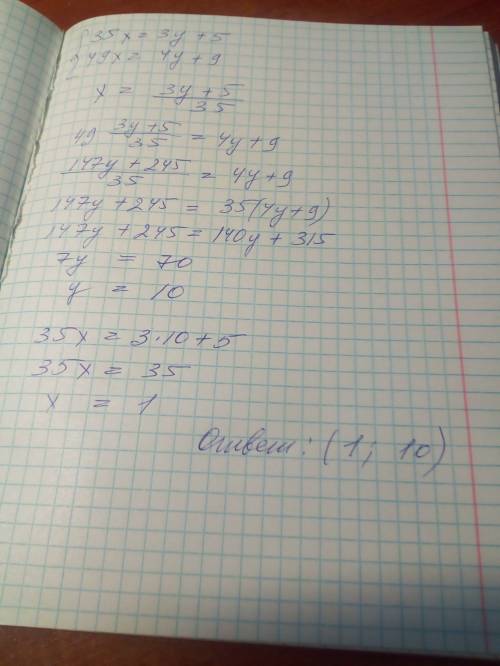 { 35x = 3y + 5
49x = 4y + 9
x = (3y + 5)/35
49 (3y + 5)/35 = 4y + 9
(147y + 245)/35 = 4y + 9
147y + 245 = 35(4y + 9)
147y + 245 = 140y + 315
7y = 70
y = 10
35x = 3·10 + 5
35x = 35
x = 1
Ответ: (1; 10)